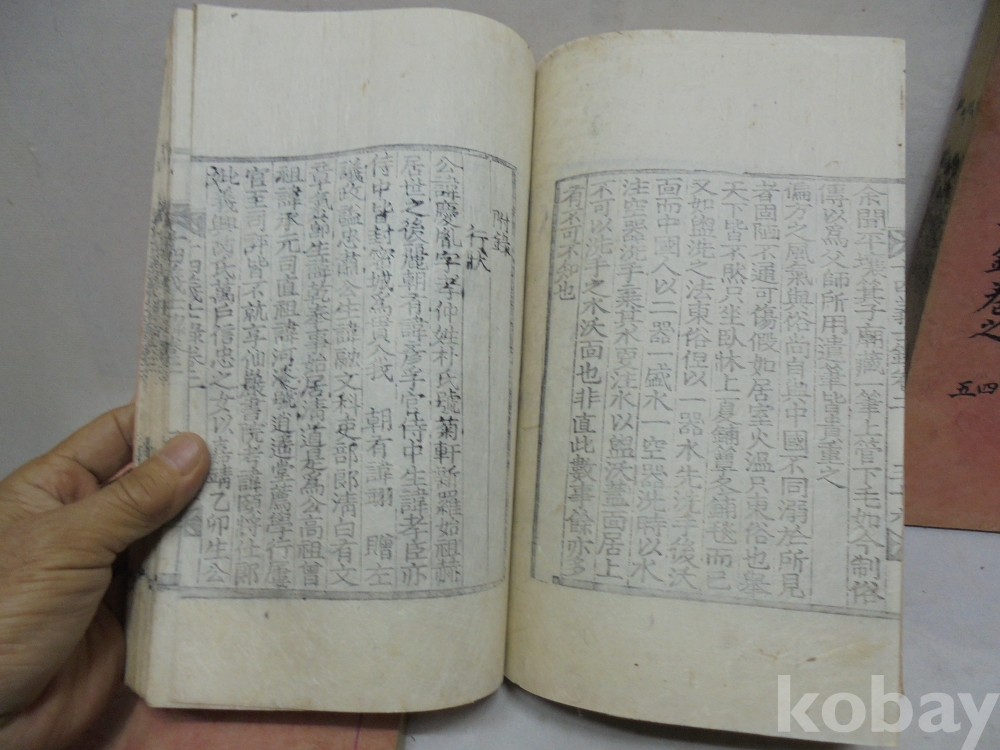 余聞平壤箕子廟藏一筆上管下毛如今制俗
傳以爲父師所用遺筆皆貴重之
偏方之風氣與俗尚自與中國不同溺於所見
者固陋不通可傷假如居室火溫只東俗也擧
天下皆不然只坐臥牀上夏鋪簟冬鋪毯而已
又如盥洗之法東俗但以一器水先洗手後沃
面而中國人以二器一盛水一空器洗時以水
注空器洗手棄其水更注水以盥沃盖面居上
不可以洗手之水沃面也非直此數事餘亦多
有不可不知也
附錄
行狀
公諱慶胤字孝仲姓朴氏號菊軒新羅始祖赫
居世之後麗朝有諱彦孚官侍中生諱孝臣亦
侍中皆封密城爲貴人我 朝有諱翊 贈左
議政謚忠肅公生諱融文科吏部郎淸白有文
章氣節生諱乾奉事始居淸道是爲高祖曾
祖諱承元司直祖諱河淡號逍遙堂薦學行屢
官至司評皆不就享仙巖書院考諱頤將仕郎
妣義興芮氏萬戶信忠之女以嘉靖乙卯生公
卷之
四
五
kobay